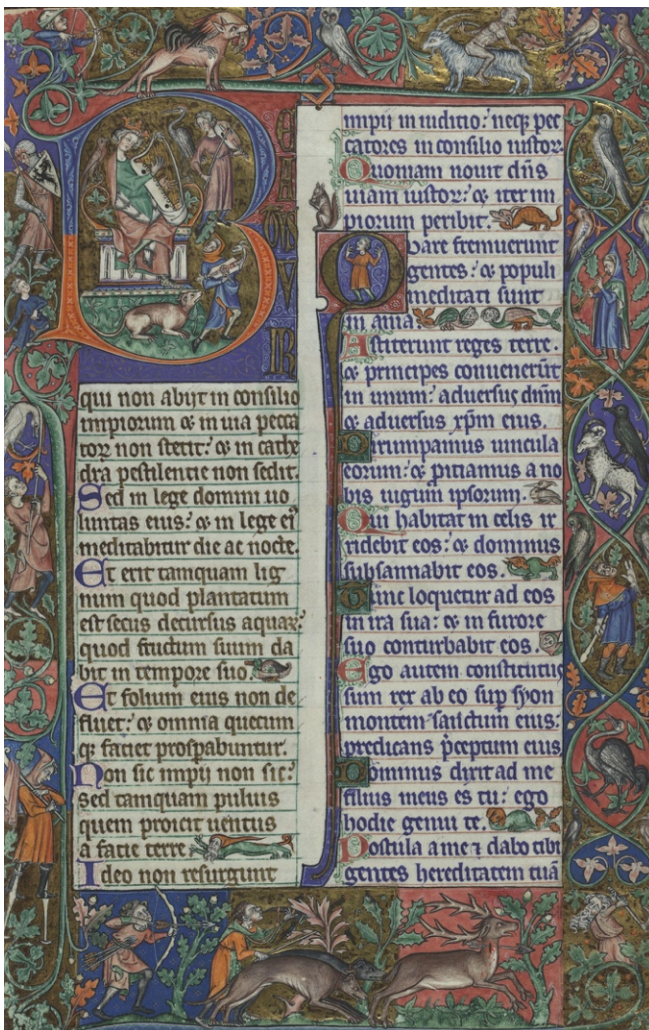 BEATUS VIR
qui non abijt in consilio
impiorum & in uia pecca
toꝝ non stetit: & in cathe
dra pestilentie non sedit.
Sed in lege domini uo
luntas eius: & in lege ei᷒
meditabitur die ac nocte.
Et erit tamquam lig
num quod plantatum
est secus decursus aquaꝝ:
quod fructum suum da
bit in tempore suo.
Et folium eius non de
fluet: & omnia quecum
qꝫ faciet prosꝑabuntur.
Non sic impij non sic:
sed tamquam puluis
quem proicit uentus
a facie terre
Ideo non resurgunt
impij in iuditio: neqꝫ pec
catores in consilio iustoꝝ.
Quoniam nouit dn̄s
uiam iustoꝝ: & iter im
piorum peribit.
Quare fremuerunt
gentes: & populi
meditati sunt
in ania.
Astiterunt reges terre.
& principes conuenerūt
in unum: aduersus dnm̄
& aduersus xp̄m eius.
Dirumpamus uincula
eorum: & ꝓitiamus a no
bis iugum ipsorum.
Qui habitat in celis ir
ridebit eos: & dominus
subsannabit eos.
Tunc loquetur ad eos
in ira sua: & in furore
suo conturbabit eos.
Ego autem constitutus
sum rex ab eo suꝑ syon
montem sanctum eius:
predicans p̄ceptum eius
Dominus dixit ad me
filius meus es tu: ego
hodie genui te.
Postula a me ⁊ dabo tibi
gentes hereditatem tuā